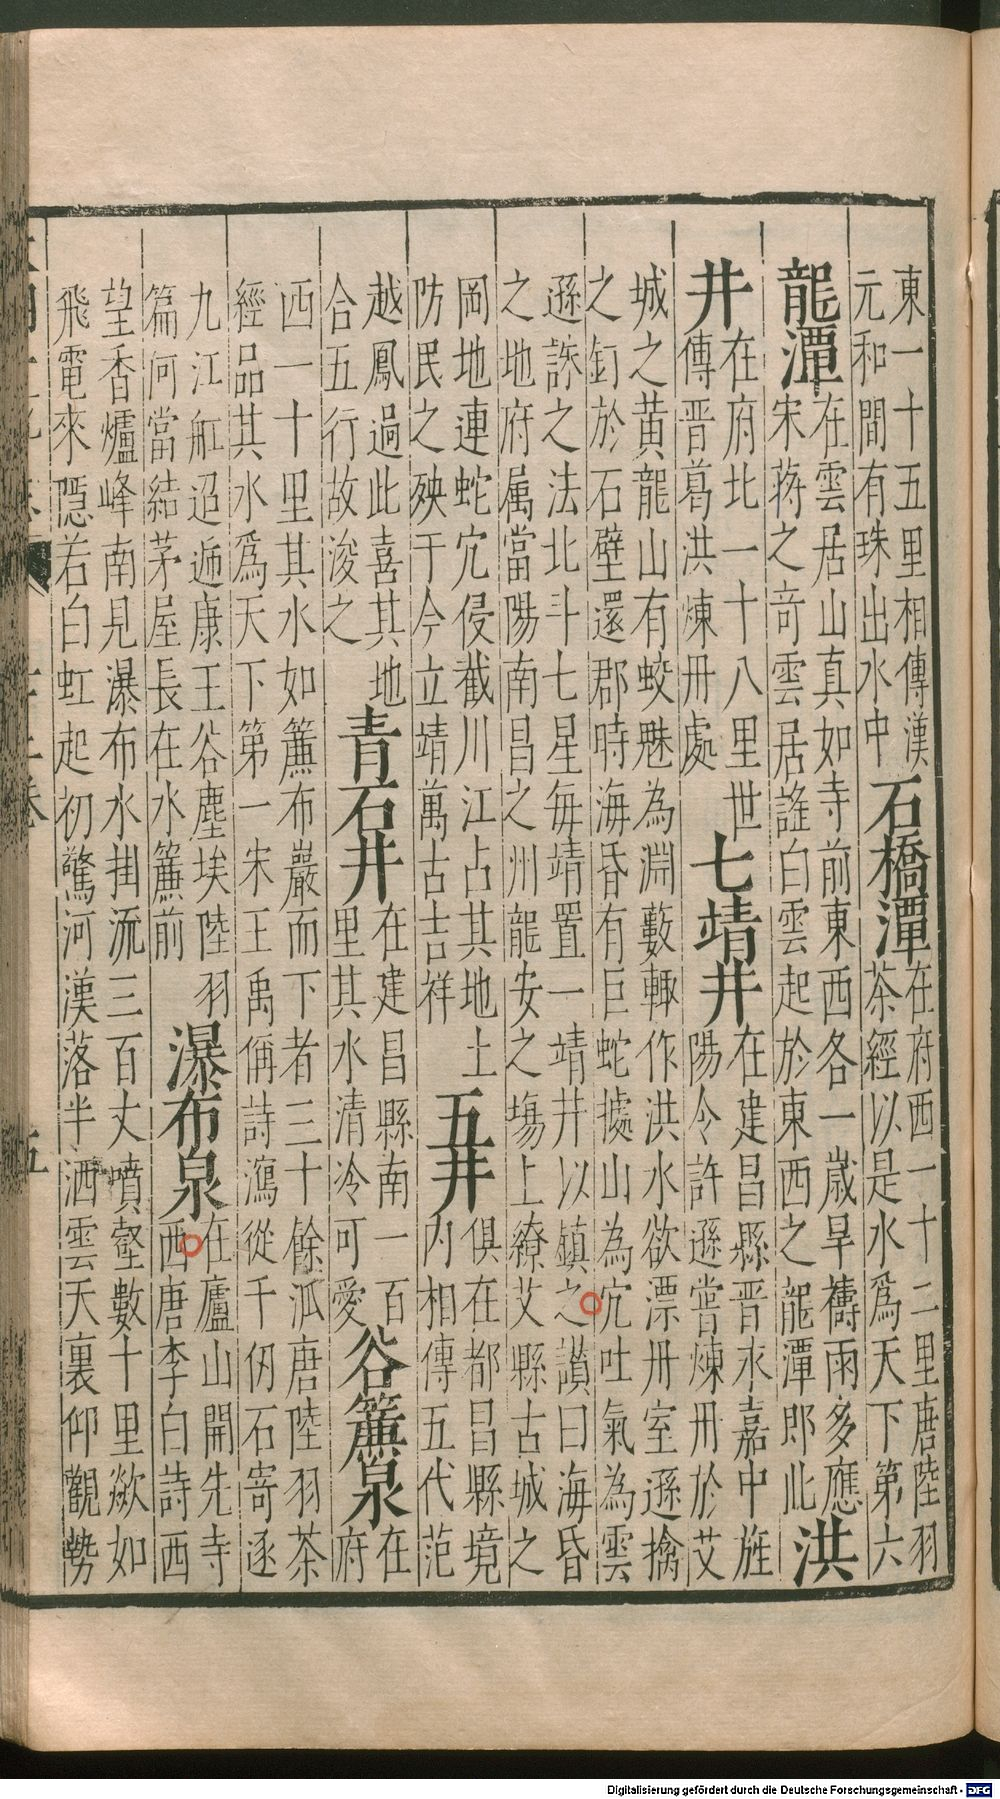 東一十五里相傳漢
元和間有珠出水中
石橋潭
在府西一十二里唐陸羽
茶經以是水爲天下第六
龍潭
在雲居山真如寺前東西各一歲旱禱雨多應
宋蒋之奇雲居謠白雲起於東西之龍潭郎此
洪
井
在府北一十八里世
傳晋葛洪煉丹處
七靖井
在建昌縣晋永嘉中旌
陽令許遜嘗煉丹於艾
城之黄龍山有蛟魅為淵藪輙作洪水欲漂丹室遜擒
之釘於石壁還郡時海昏有巨蛇據山為穴吐氣為雲
遜誅之法北斗七星每靖置一靖井以鎮之讃曰海昏
之地府属當陽南昌之州龍安之塲上繚艾縣古城之
岡地連蛇穴侵截川江占其地土
防民之殃于今立靖萬古吉祥
五井
俱在都昌縣境
内相傳五代范
越鳳過此喜其地
合五行故浚之
青石井
在建昌縣南一百
里其水清冷可愛
谷簾泉
在
府
西一十里其水如簾布巖而下者三十餘泒唐陸羽茶
經品其水爲天下第一宋王禹偁詩瀉從千仞石寄逐
九江舡迢遞康王谷塵埃陸羽
篇何當結茅屋長在水簾前
瀑布泉
在廬山開先寺
西唐李白詩西
望香爐峰南見瀑布水掛流三百丈噴壑數十里歘如
飛電來隠若白虹起初驚河漢落半洒雲天裏仰觀勢
五
Digitalisierung gefördert durch die Deutsche Forschungsgemeinschaft - DFG